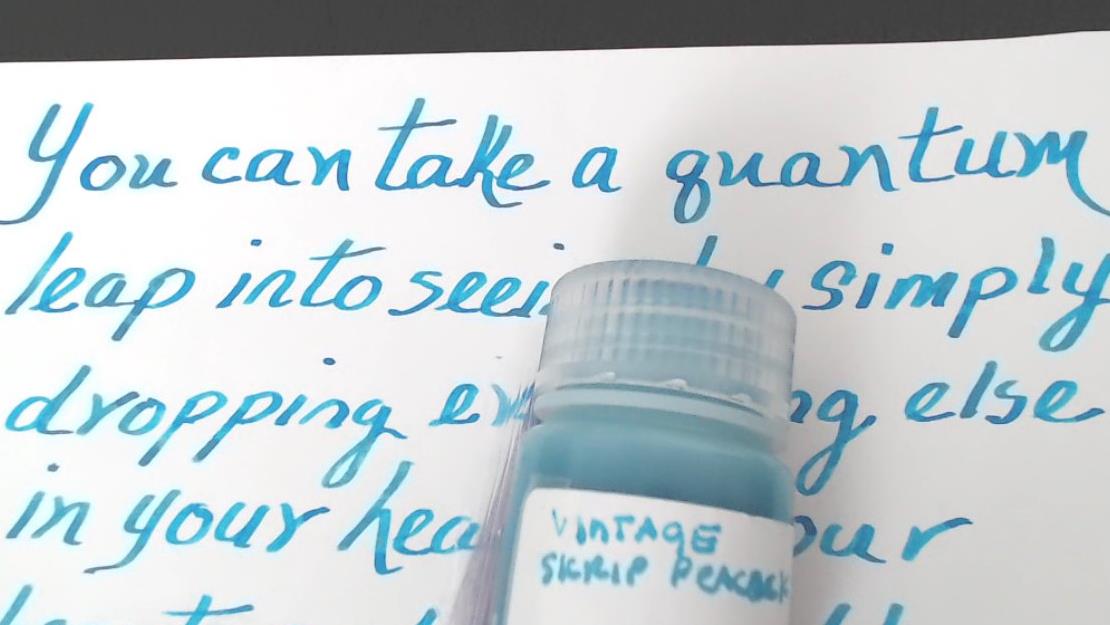 You can take a quantum
leap into simply
dropping else
in your
VINTAGE
SKRIP PEACOCK